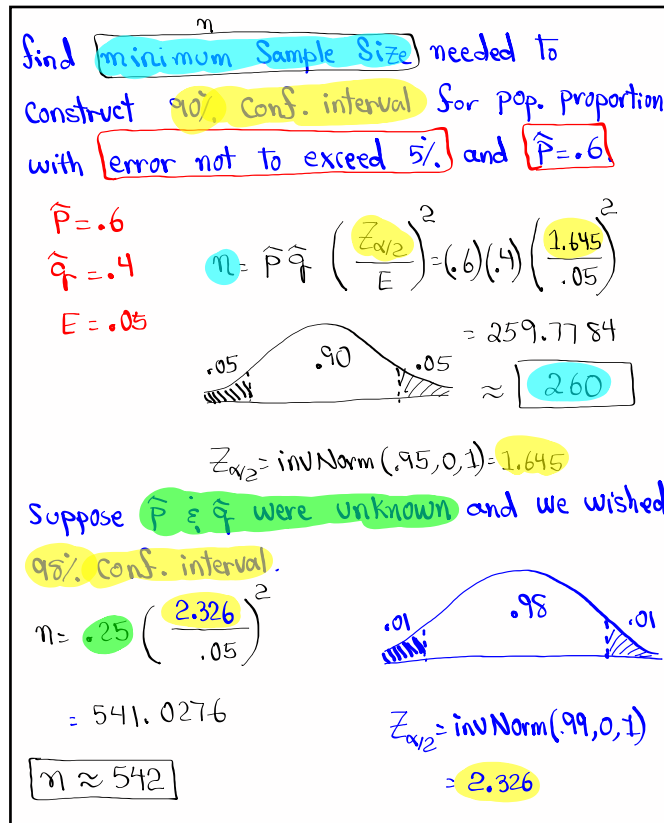 n
find minimum Sample Size needed to
Construct 90% Conf. interval for pop. proportion
with error not to exceed 5% and p̂=.6.
p̂=.6
q̂=.4
E=.05
n= p̂ q̂ (Zα/2/E)²=(.6)(.4)(1.645/.05)²
= 259.7784
≈ 260
.05 .90 .05
Zα/2=invNorm(.95,0,1)=1.645
Suppose p̂ & q̂ were unknown and we wished
98% Conf. interval.
n= .25 (2.326/.05)²
= 541.0276
n≈542
.01 .98 .01
Zα/2=invNorm(.99,0,1)
= 2.326